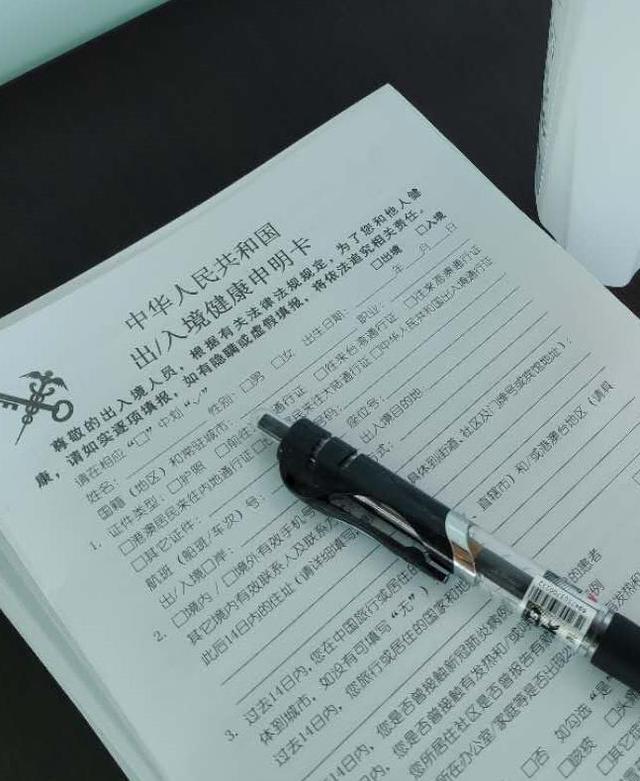 中华人民共和国
出/入境健康申明卡
尊敬的出入境人员，根据有关法律法规规定，为了您和他人健
康，请如实逐项填报，如有隐瞒或虚假填报，将依法追究相关责任。
请在相应“□”中划“√” □出境 □入境
姓名： 性别：□男 □女 出生日期： 年 月 日
国籍（地区）和常驻城市： 职业：
1. 证件类型：□护照 □前往 通行证 □往来台湾通行证 □往来港澳通行证
□港澳居民来往内地通行证 民来往大陆通行证 □中华人民共和国出入境通行证
□其它证件： 号码：
航班（船班/车次）号： 座位号：
出/入境口岸： 出入境目的地：
2. □境内/□境外有效手机号
其它境内有效联系人及联系方 方式：
此后14日内的住址（请详细填写 具体到街道、社区及门牌号或宾馆地址）：
3. 过去14日内，您在中国旅行或居住的 直辖市）和/或港澳台地区（请具
体到城市，如没有可填写“无”）
过去14日内，您旅行或居住的国家和地
过去14日内，您是否曾接触新冠肺炎病 的患者
您是否曾接触有发热和/或 例
您所居住社区是否曾报告有 发热和
所在办公室/家庭等是否出现
□否 如勾选“是”
□咳嗽